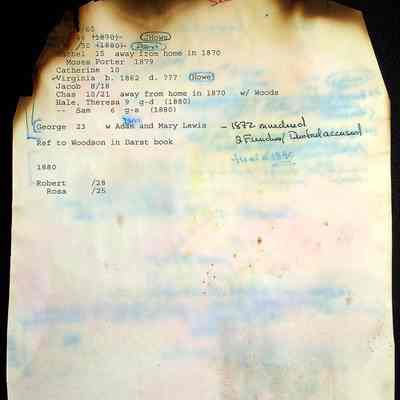 60
(1870) Howe
/52 (1880)
15 away from home in 1870
Moses Porter 1879
Catherine 10
Virginia b. 1862 d. ??? Howe
Jacob 8/18
Chas 10/21 away from home in 1870 w/ Woods
Hale, Theresa 9 g-d (1880)
-- Sam 6 g-s (1880)
George 23 w Adam and Mary Lewis - 1872 murdered
accused
Ref to Woodson in Darst book
1880
Robert /28
Rosa /25